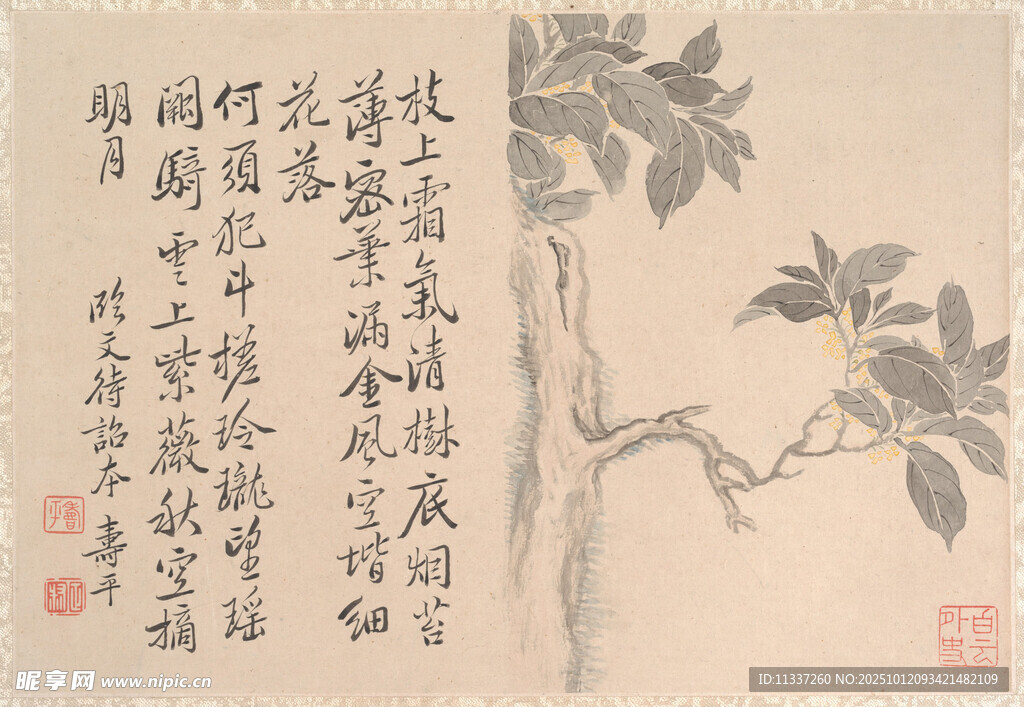 枝上霜氣清樹底烟苔
薄密葉漏金風空堦細
花落
何須犯斗槎玲瓏望瑤
闕騎雲上紫薇秋空摘
明月
臨文待詔本 壽平
壽平
白雲外史
昵享网 www.nipic.cn
ID:11337260 NO:20251012093421482109